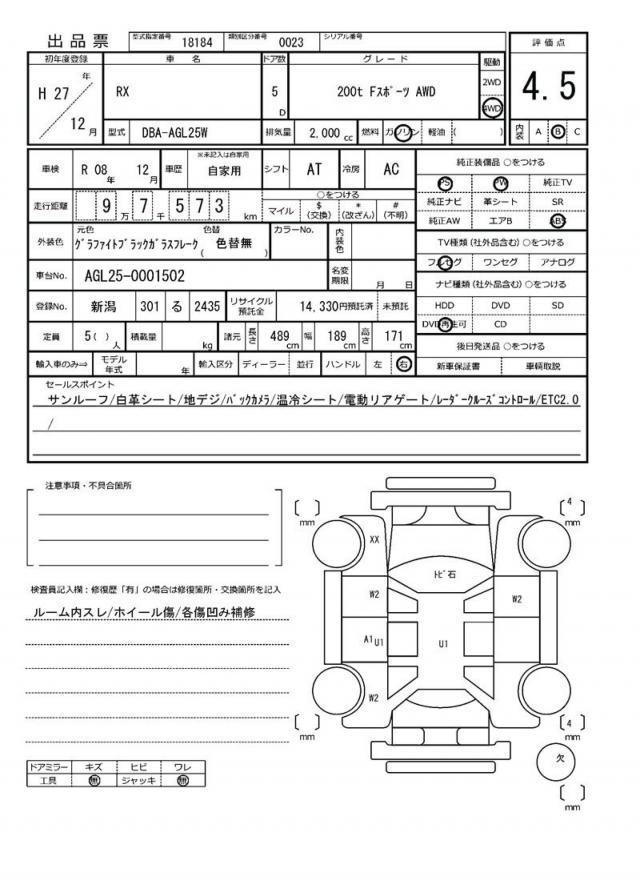 出品票 型式指定番号 18184 類別区分番号 0023 シリアル番号
評価点
4.5
内装 A B C
初年度登録 車名 ドア数 グレード 駆動
H 27 年 12 月 RX 5 D 200t Fスポーツ AWD 2WD 4WD
型式 DBA-AGL25W 排気量 2,000 cc 燃料 ガソリン 軽油 ( )
車検 R 08 年 12 月 車歴 ※未記入は自家用 自家用 シフト AT 冷房 AC
走行距離 9 万 7 千 5 7 3 km ○をつける
マイル $ (交換) * (改ざん) # (不明)
外装色 元色 グラファイトブラックガラスフレーク 色替 ( 色替無 ) カラーNo. 内装色
車台No. AGL25-0001502 名変期限 月 日
登録No. 新潟 301 る 2435 リサイクル預託金 14,330円預託済 未預託
定員 5( ) 人 積載量 kg 諸元 長さ 489 cm 幅 189 cm 高さ 171 cm
輸入車のみ⇒ モデル年式 年 輸入区分 ディーラー 並行 ハンドル 左 右
純正装備品 ○をつける
PS PW 純正TV
純正ナビ 革シート SR
純正AW エアB ABS
TV種類 (社外品含む) ○をつける
フルセグ ワンセグ アナログ
ナビ種類 (社外品含む) ○をつける
HDD DVD SD
DVD再生可 CD
後日発送品 ○をつける
新車保証書 車輌取説
セールスポイント
サンルーフ/白革シート/地デジ/バックカメラ/温冷シート/電動リアゲート/レーダークルーズコントロール/ETC2.0
/
注意事項・不具合箇所
検査員記入欄：修復歴「有」の場合は修復箇所・交換箇所を記入
ルーム内スレ/ホイール傷/各傷凹み補修
ドアミラー キズ ヒビ ワレ
工具 無 ジャッキ 無
[ ] mm
[ 4 ] mm
XX
トビ石
W2
W2
A1 U1
U1
W2
[ ] mm
[ 4 ] mm
欠
[ ] mm